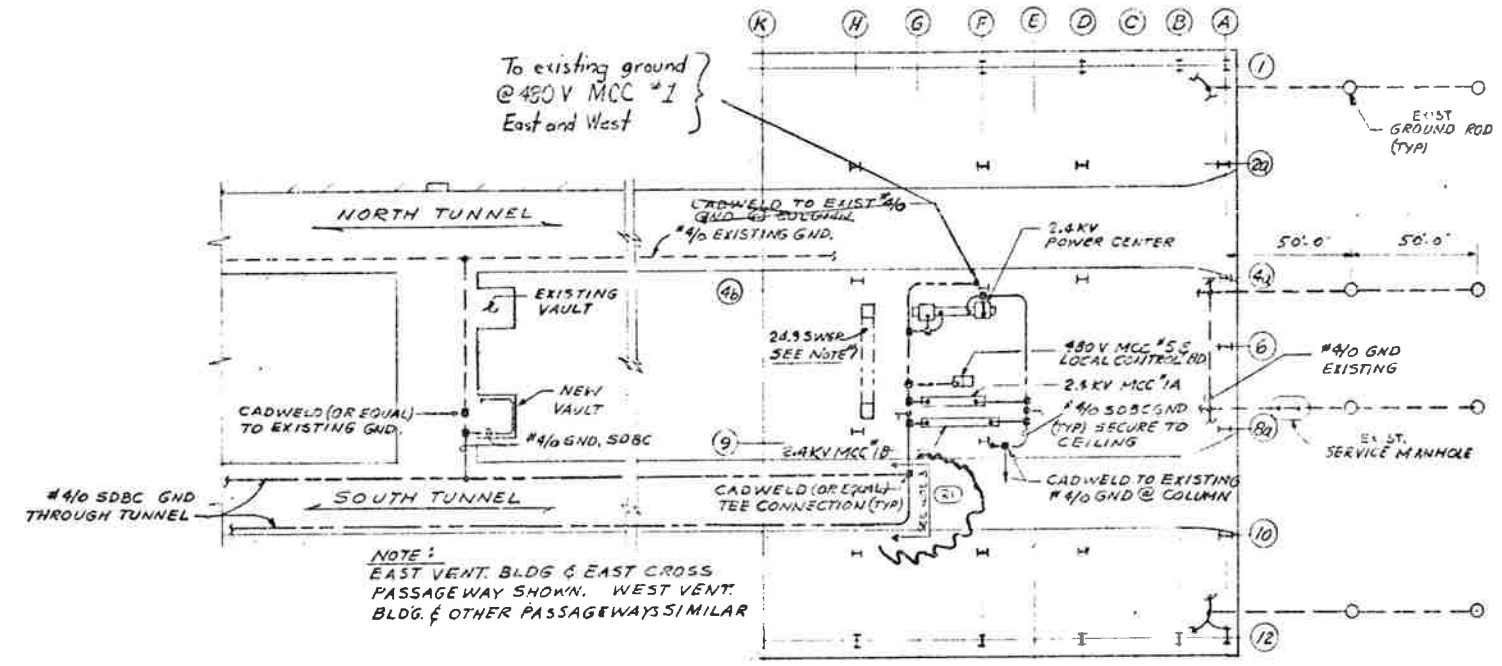 K H G F E D C B A
To existing ground
@ 480 V MCC #1
East and West
1
EXIST
GROUND ROD
(TYP)
2a
NORTH TUNNEL
CADWELD TO EXIST #4/0
GND @ COLUMN
#4/0 EXISTING GND.
2.4 KV
POWER CENTER
50'-0" 50'-0"
4a
4b
EXISTING
VAULT
SEE NOTE
480 V MCC #5 &
LOCAL CONTROL BD
6
#4/0 GND
EXISTING
2.4 KV MCC #1A
NEW
VAULT
CADWELD (OR EQUAL)
TO EXISTING GND.
#4/0 SDBC GND
(TYP) SECURE TO
CEILING
8a
#4/0 GND, SDBC
9
2.4 KV MCC #1B
EXIST.
SERVICE MANHOLE
#4/0 SDBC GND
THROUGH TUNNEL
SOUTH TUNNEL
CADWELD (OR EQUAL)
TEE CONNECTION (TYP)
SEE NOTE
CADWELD TO EXISTING
#4/0 GND @ COLUMN
10
NOTE:
EAST VENT. BLDG & EAST CROSS
PASSAGEWAY SHOWN. WEST VENT.
BLDG. & OTHER PASSAGEWAYS SIMILAR
12